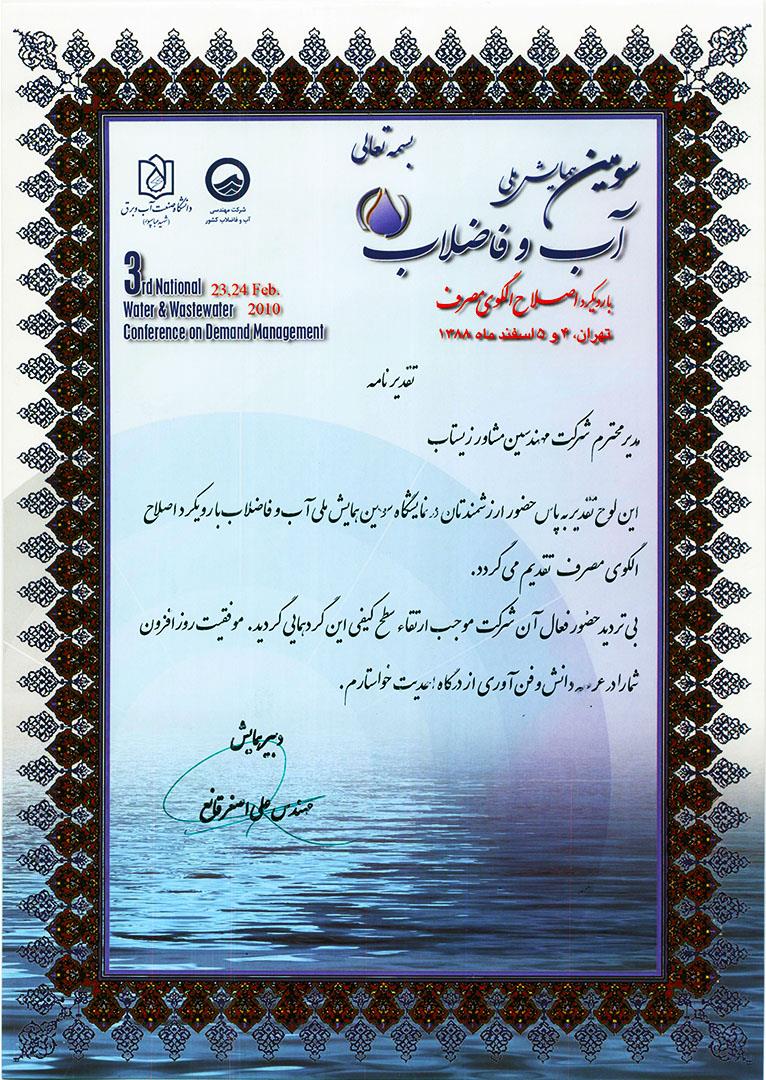 بسمه تعالی
سومین همایش ملی
آب و فاضلاب
با رویکرد اصلاح الگوی مصرف
تهران، ۴ و ۵ اسفند ماه ۱۳۸۸
شرکت مهندسی
آب و فاضلاب کشور
دانشگاه صنعت آب و برق
(شهید عباسپور)
3rd National 23,24 Feb.
Water & Wastewater 2010
Conference on Demand Management
تقدیر نامه
مدیر محترم شرکت مهندسین مشاور زیستاب
این لوح تقدیر به پاس حضور ارزشمندتان در نمایشگاه سومین همایش ملی آب و فاضلاب با رویکرد اصلاح
الگوی مصرف تقدیم می گردد.
بی تردید حضور فعال آن شرکت موجب ارتقاء سطح کیفی این گردهمایی گردید. موفقیت روز افزون
شما را در عرصه دانش و فن آوری از درگاه احدیت خواستارم.
دبیر همایش
مهندس علی اصغر قانع